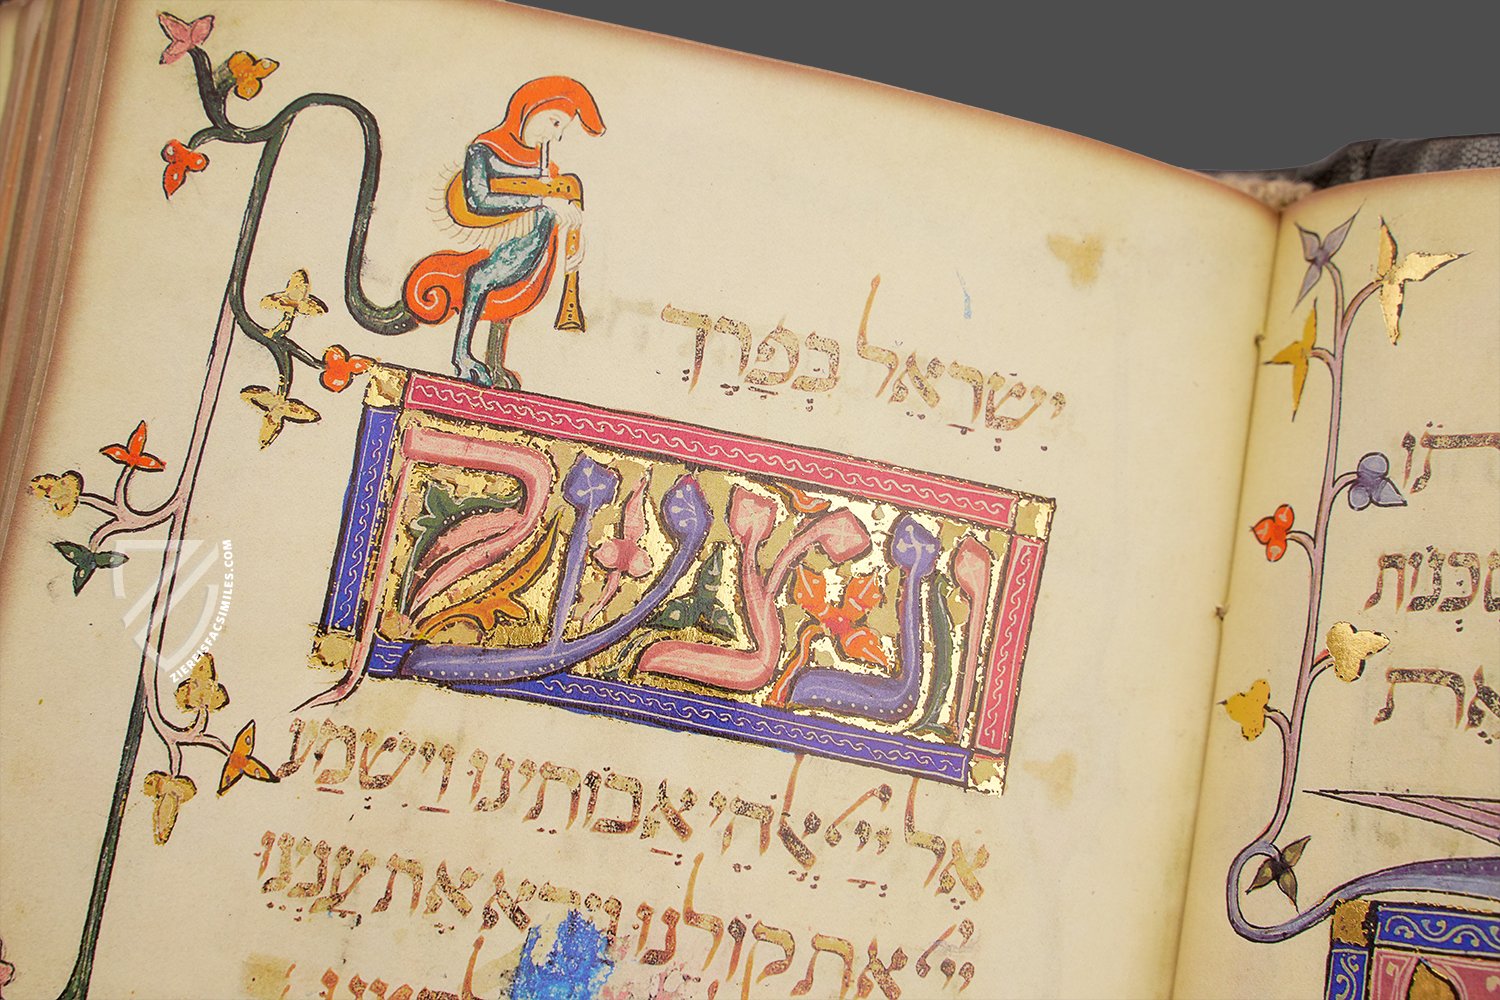 יִשְׂרָאֵל בְּפָרֶךְ
ונצעק
אֶל יְיָ אֱלֹהֵי אֲבוֹתֵינוּ וַיִּשְׁמַע
יְיָ אֶת קוֹלֵנוּ וַיַּרְא אֶת עָנְיֵנוּ
ZIEREISFACSIMILES.COM